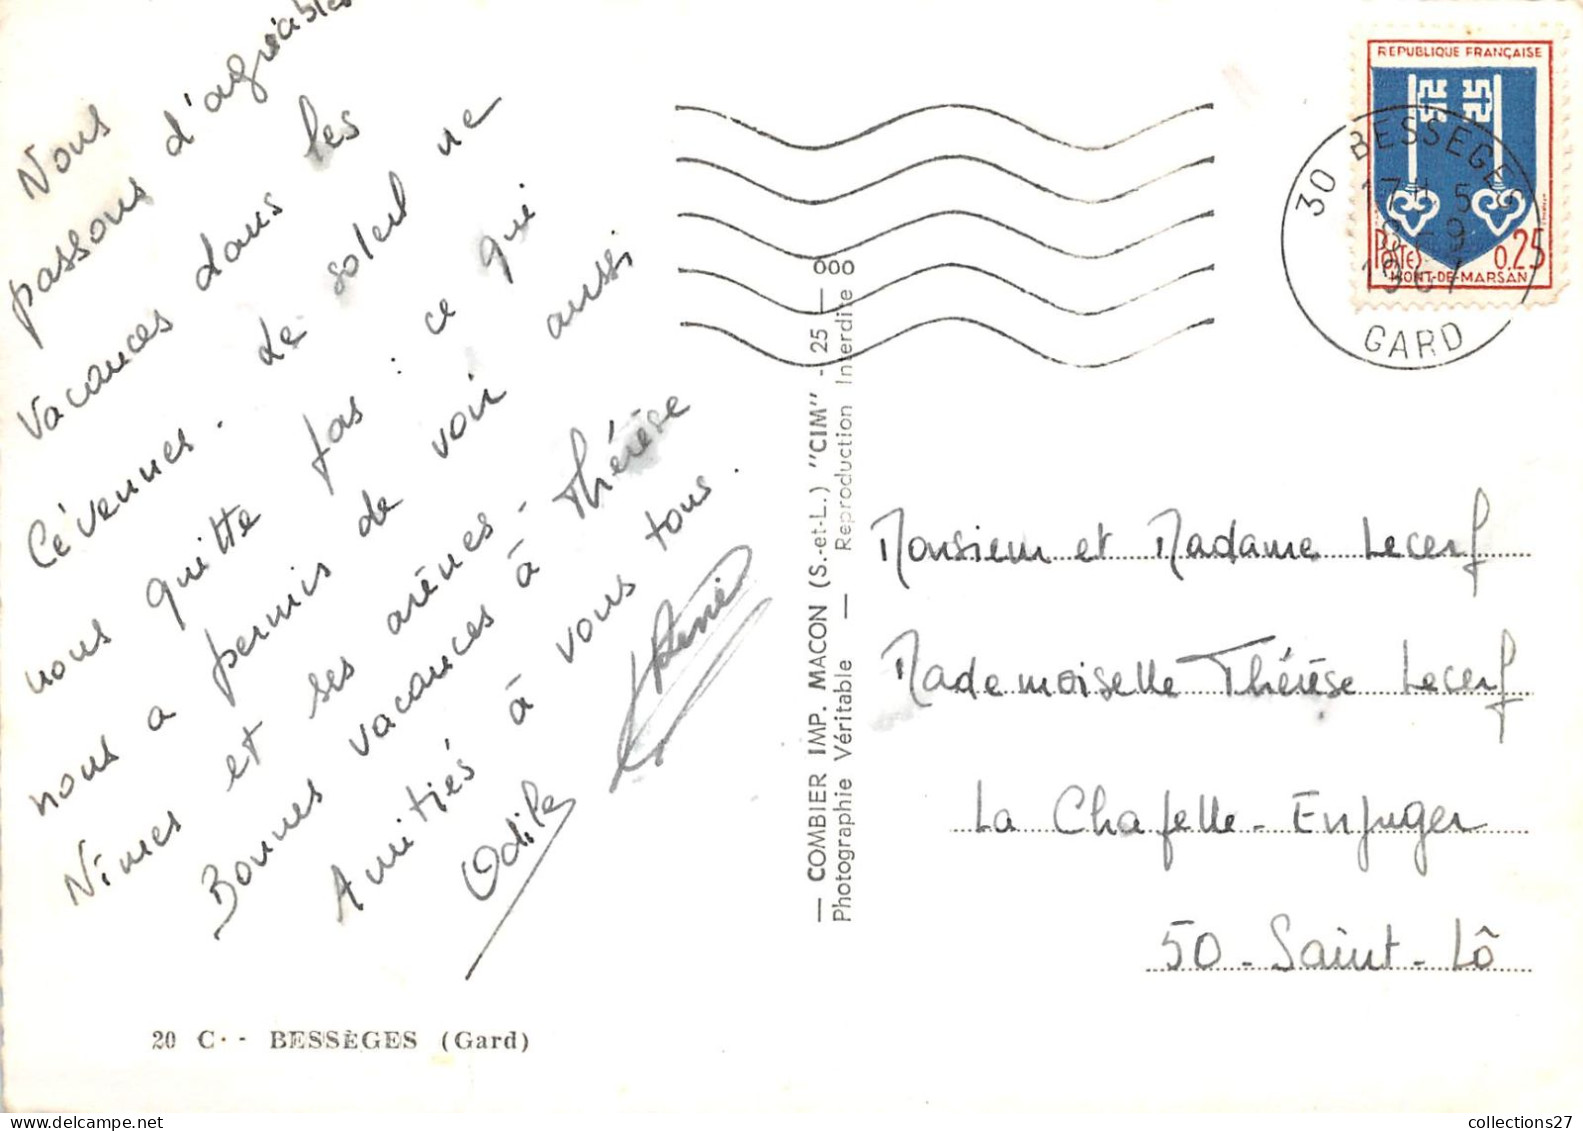 Nous
passons d'agréables
vacances dans les
Cévennes. Le soleil ne
nous quitte pas : ce qui
nous a permis de voir aussi
Nîmes et ses arènes -
Bonnes vacances à Thérèse
Amitiés à vous tous.
Odile
René
20 C·- BESSÈGES (Gard)
— COMBIER IMP. MACON (S.-et-L.) "CIM" - 25 — 000
Photographie Véritable — Reproduction Interdite
REPUBLIQUE FRANÇAISE
POSTES 0,25
MONT-DE-MARSAN
30 BESSEGES
17H 5
9
1967
GARD
Monsieur et Madame Lecerf
Mademoiselle Thérèse Lecerf
La Chapelle-Enjuger
50 - Saint-Lô
collections27